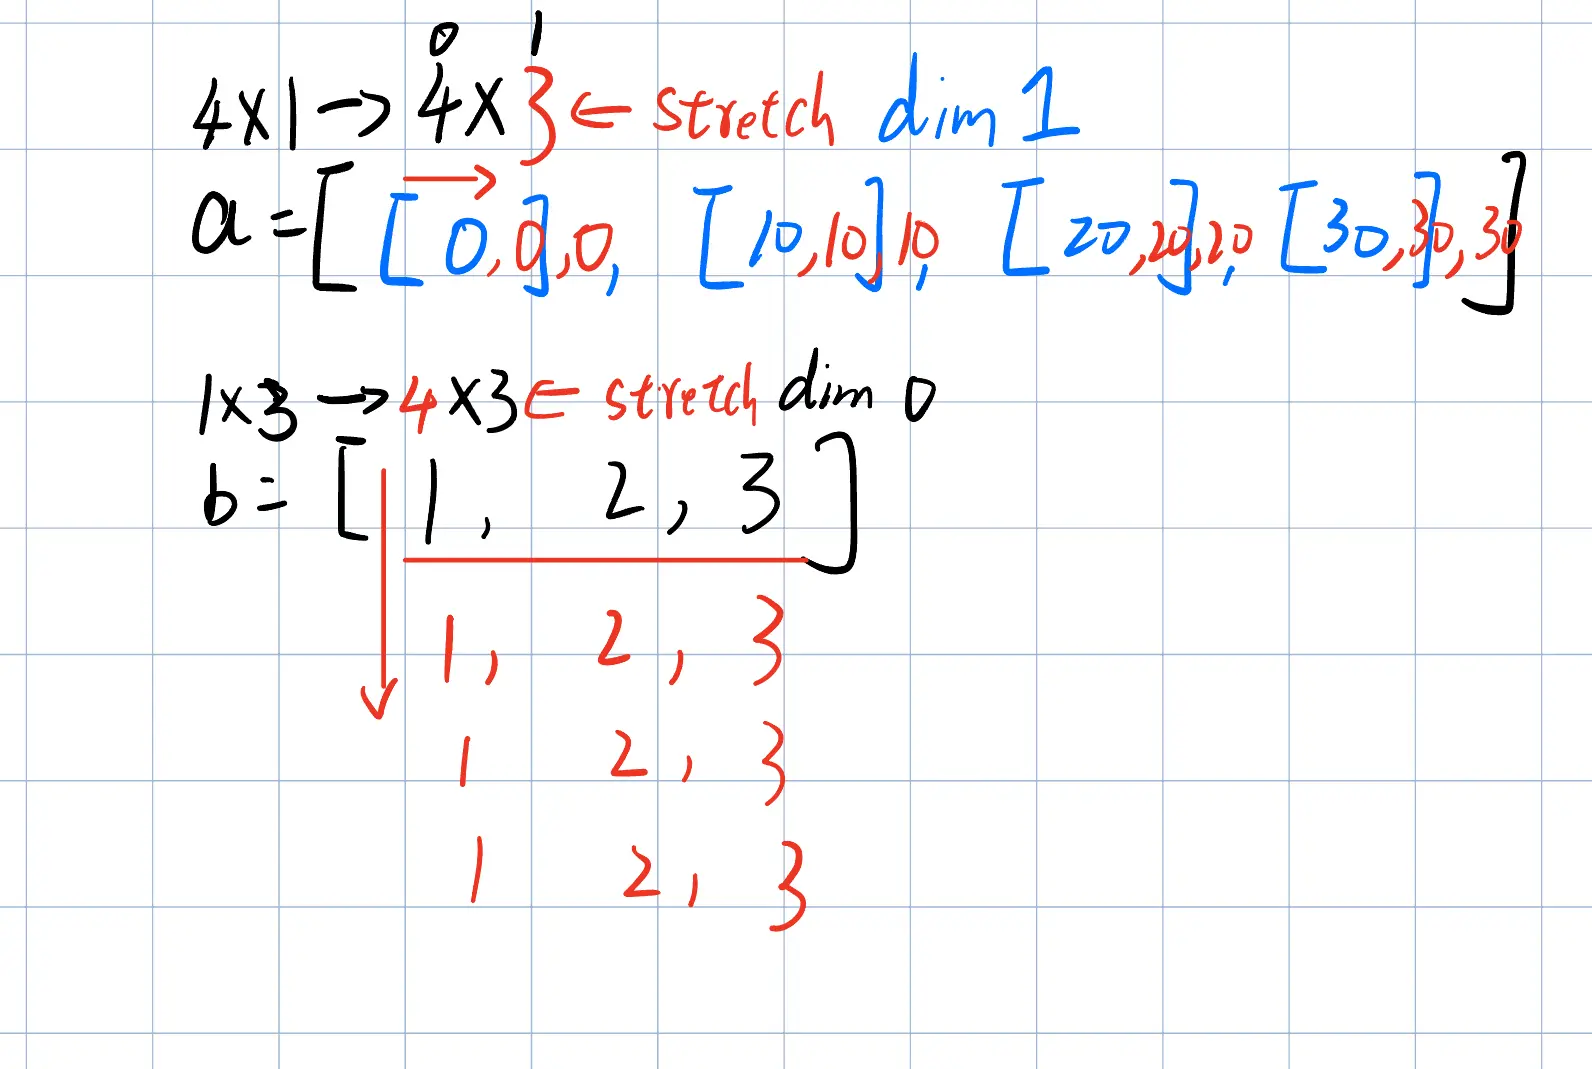 0 1
4x1 → 4x3 ← stretch dim 1
a = [ [ 0, 0 ], 0, [ 10, 10 ] 10, [ 20, 20 ], 20, [ 30, 30 ], 30 ]
1x3 → 4x3 ← stretch dim 0
b = [ 1, 2, 3 ]
1, 2, 3
1 2, 3
1 2, 3